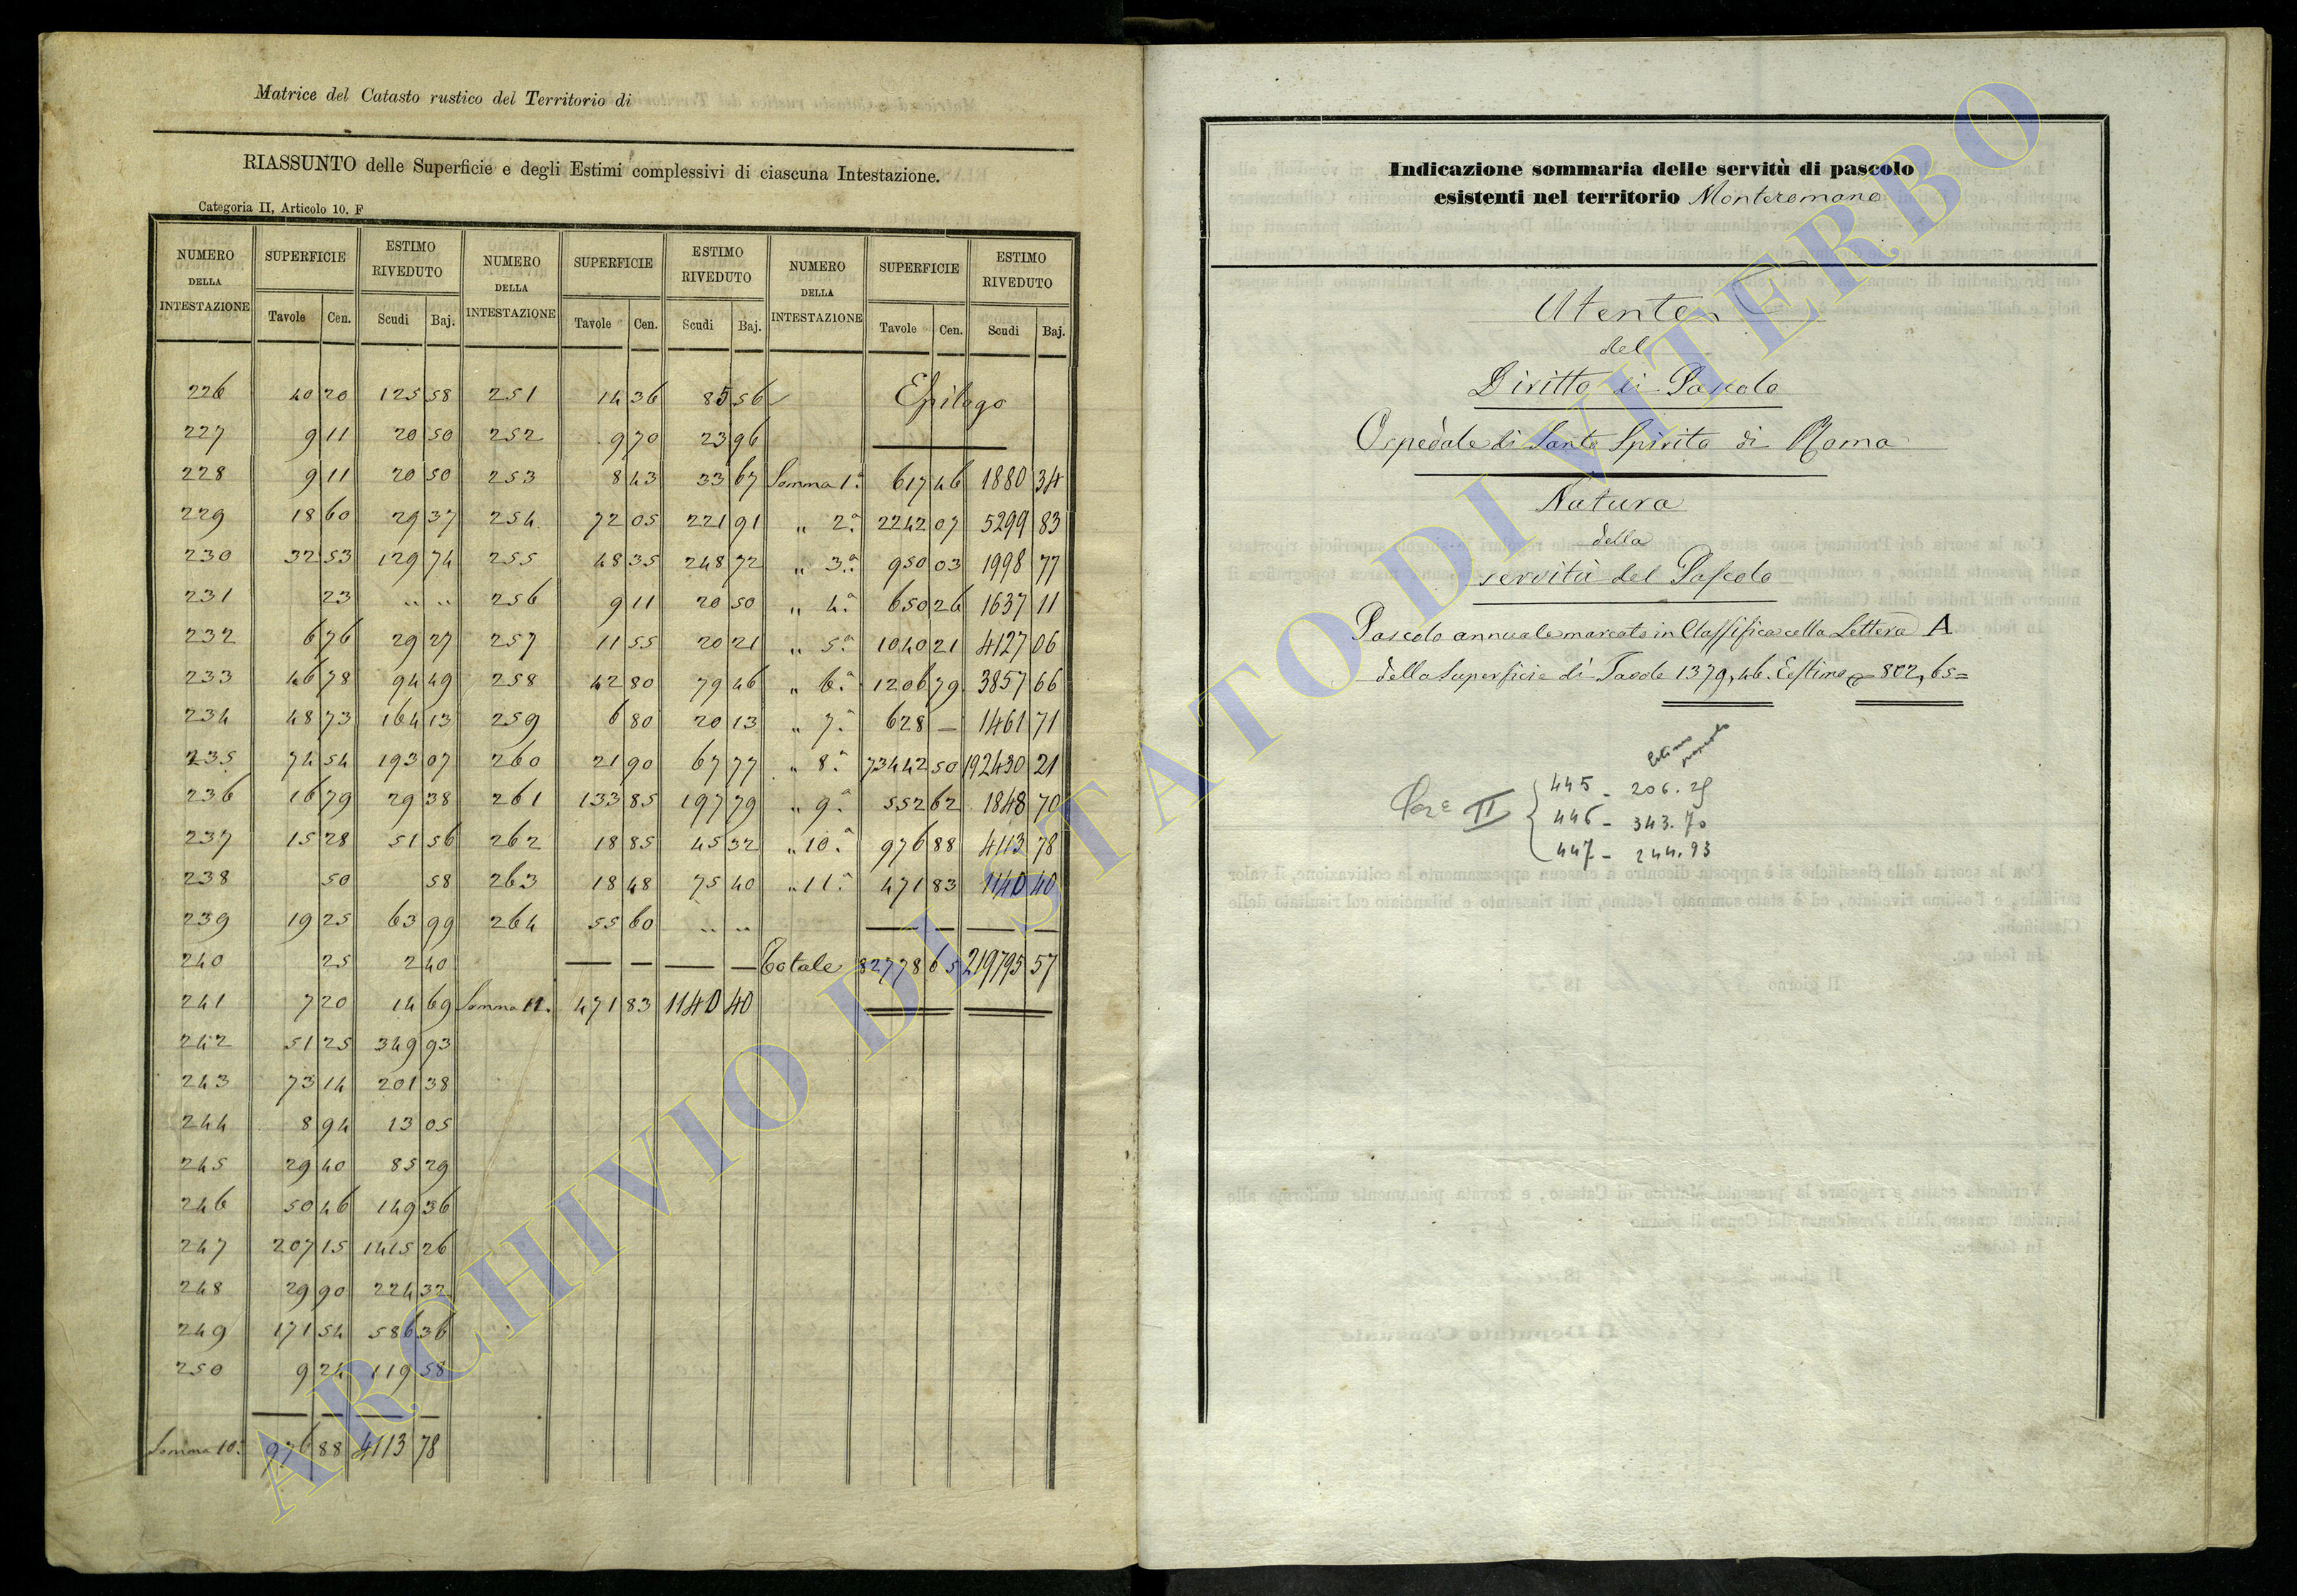 Matrice del Catasto rustico del Territorio di
RIASSUNTO delle Superficie e degli Estimi complessivi di ciascuna Intestazione.
Categoria II, Articolo 10. F
NUMERO DELLA INTESTAZIONE SUPERFICIE ESTIMO RIVEDUTO NUMERO DELLA INTESTAZIONE SUPERFICIE ESTIMO RIVEDUTO NUMERO DELLA INTESTAZIONE SUPERFICIE ESTIMO RIVEDUTO
Tavole Cen. Scudi Baj. Tavole Cen. Scudi Baj. Tavole Cen. Scudi Baj.
226 40 20 125 58 251 14 36 85 56 Epilogo
227 9 11 20 50 252 9 70 23 96
228 9 11 20 50 253 8 43 33 67 Somma 1.a 617 46 1880 34
229 18 60 29 37 254 72 05 221 91 " 2.a 2242 07 5299 83
230 32 53 129 74 255 48 35 248 72 " 3.a 950 03 1998 77
231 23 " " 256 9 11 20 50 " 4.a 650 26 1637 11
232 6 76 29 27 257 11 55 20 21 " 5.a 1040 21 4127 06
233 46 78 94 49 258 42 80 79 46 " 6.a 1206 79 3857 66
234 48 73 164 13 259 6 80 20 13 " 7.a 628 — 1461 71
235 74 54 193 07 260 21 90 67 77 " 8.a 73442 50 192430 21
236 16 79 29 38 261 133 85 197 79 " 9.a 552 62 1848 70
237 15 28 51 56 262 18 85 45 32 " 10.a 976 88 4113 78
238 50 58 263 18 48 75 40 " 11.a 471 83 1140 40
239 19 25 63 99 264 55 60 " "
240 25 2 40 Totale 82778 65 219795 57
241 7 20 14 69 Somma 11. 471 83 1140 40
242 51 25 349 93
243 73 14 201 38
244 8 94 13 05
245 29 40 85 29
246 50 46 149 36
247 207 15 1415 26
248 29 90 224 32
249 171 54 586 36
250 9 24 119 58
Somma 10.a 976 88 4113 78
Indicazione sommaria delle servitù di pascolo
esistenti nel territorio Monteromano
Utente
del
Diritto di Pascolo
Ospedale di Santo Spirito di Roma
Natura
della
servitù del Pascolo
Pascolo annuale marcato in Classifica colla Lettera A
della Superficie di Tavole 1379,46. Estimo 802,65=
Estimo
II
445 - 206.25
446 - 343.70
447 - 244.93
ARCHIVIO DI STATO DI VITERBO